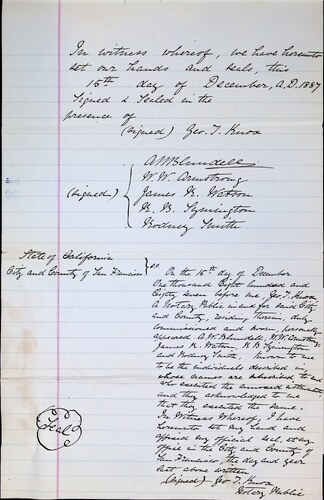 In witness whereof, we have hereunto
set our hands and seals, this
15th day of December, A.D. 1887
Signed & Sealed in the
presence of
(signed) Geo. T. Knox
(signed)
A W Blundell
W. W. Armstrong
James K. Watson
R. B. Symington
Rodney Smith
State of California
City and County of San Francisco } ss
On the 15th day of December
One thousand Eight hundred and
Eighty seven before me, Geo. T. Knox
A Notary Public in and for said City
and County, residing therein, duly
commissioned and sworn, personally
appeared A. W. Blundell, W. W. Armstrong
James K. Watson, R. B. Symington
and Rodney Smith known to me
to be the individuals described in
whose names are subscribed to and
who executed the annexed instrument
and they acknowledged to me
that they executed the same.
In Witness Whereof, I have
hereunto set my hand and
affixed my official seal, at my
office in the City and County of
San Francisco, the day and year
last above written
(signed) Geo T. Knox
Notary Public
Seal